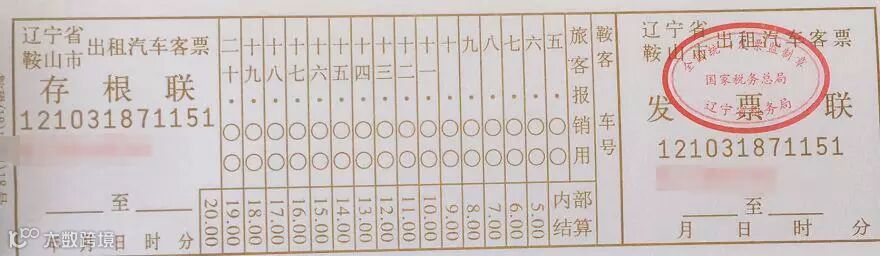 辽宁省
鞍山市
出租汽车客票
存根联
121031871151
至
年 月 日 时 分
二十·〇〇
十九·〇〇
十八·〇〇
十七·〇〇
十六·〇〇
十五·〇〇
十四·〇〇
十三·〇〇
十二·〇〇
十一·〇〇
十·〇〇
九·〇〇
八·〇〇
七·〇〇
六·〇〇
五·〇〇
旅客报销用
20.00
19.00
18.00
17.00
16.00
15.00
14.00
13.00
12.00
11.00
10.00
9.00
8.00
7.00
6.00
5.00
内部
结算
鞍客 车号
辽宁省
鞍山市
出租汽车客票
全国统一发票监制章
国家税务总局
辽宁省税务局
发票联
121031871151
至
月 日 时 分
大数跨境